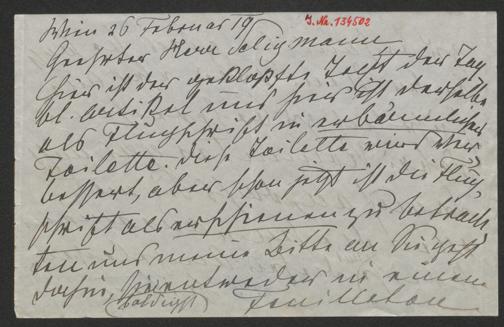 Wien 26 Februar 19
J. Nr. 134502
Geehrter Herr Seligmann
hier ist der geklopfte Text der Tag
bl. Artikel und hier ist derselbe
als Flugschrift in erbärmlicher
Toilette. diese Toilette wird ver
bessert, aber schon jetzt ist die Flug
schrift als erschienen zu betrach
ten und meine Bitte an Sie geht
dahin, Sie entweder in einem
(baldigst) Feuilleton